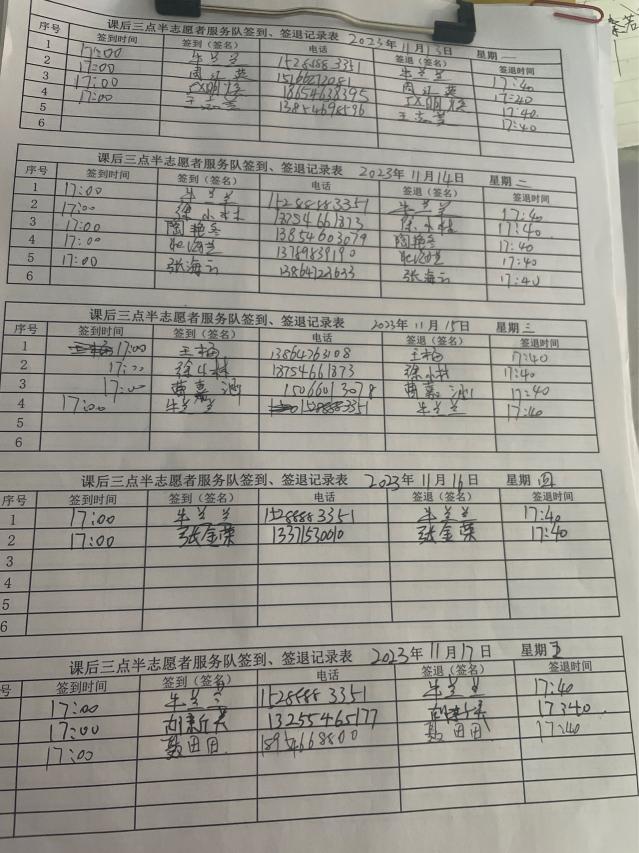 课后三点半志愿者服务队签到、签退记录表 2023年11月13日 星期一
序号 签到时间 签到（签名） 电话 签退（签名） 签退时间
1 17:00 牛兰兰 15288883351 牛兰兰 17:40
2 17:00 17:40
3 17:00 18654638395 17:40
4 17:00 王志芸 13854698596 王志芸 17:40
5
6
课后三点半志愿者服务队签到、签退记录表 2023年11月14日 星期二
序号 签到时间 签到（签名） 电话 签退（签名） 签退时间
1 17:00 牛兰兰 15288883351 牛兰兰 17:40
2 17:00 徐小林 18754661873 徐小林 17:40
3 17:00 陶艳冬 13854603079 陶艳冬 17:40
4 17:00 13789839190 17:40
5 17:00 张海云 13864723633 张海云 17:40
6
课后三点半志愿者服务队签到、签退记录表 2023年11月15日 星期三
序号 签到时间 签到（签名） 电话 签退（签名） 签退时间
1 17:00 王杨 13864263108 王杨 17:40
2 17:00 徐小林 18754661873 徐小林 17:40
3 17:00 15066013078 17:40
4 17:00 牛兰兰 15288883351 牛兰兰 17:40
5
6
课后三点半志愿者服务队签到、签退记录表 2023年11月16日 星期四
序号 签到时间 签到（签名） 电话 签退（签名） 签退时间
1 17:00 牛兰兰 15288883351 牛兰兰 17:40
2 17:00 张金荣 13371530010 张金荣 17:40
3
4
5
6
课后三点半志愿者服务队签到、签退记录表 2023年11月17日 星期五
号 签到时间 签到（签名） 电话 签退（签名） 签退时间
17:00 牛兰兰 15288883351 牛兰兰 17:40
17:00 胡新 13255465177 17340
17:00 聂田田 18954668800 聂田田 17:40